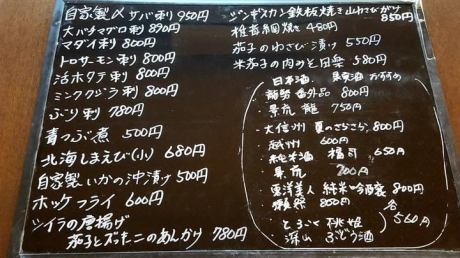 自家製〆サバ刺 950円
大バチマグロ刺 890円
マダイ刺 800円
トロサーモン刺 800円
活ホタテ刺 800円
ミンククジラ刺 800円
ぶり刺 780円
青つぶ煮 500円
北海しまえび(小) 680円
自家製いかの沖漬け 500円
ホッケフライ 600円
シイラの唐揚げ
茄子とズッキーニのあんかけ 780円
ジンギスカン鉄板焼き山わさびがけ
850円
椎茸網焼き 480円
茄子のわさび漬け 550円
米茄子の肉みそ田楽 580円
日本酒 果実酒 おすすめ
龍勢 番外品 800円
景虎 龍 750円
大信州 夏のさらさら 800円
越州 600円
純米酒 福司 650円
景虎 700円
東洋美人 純米吟醸 800円
獺祭 800円
とろこく 桃姫
深山 ぶどう酒
各 560円